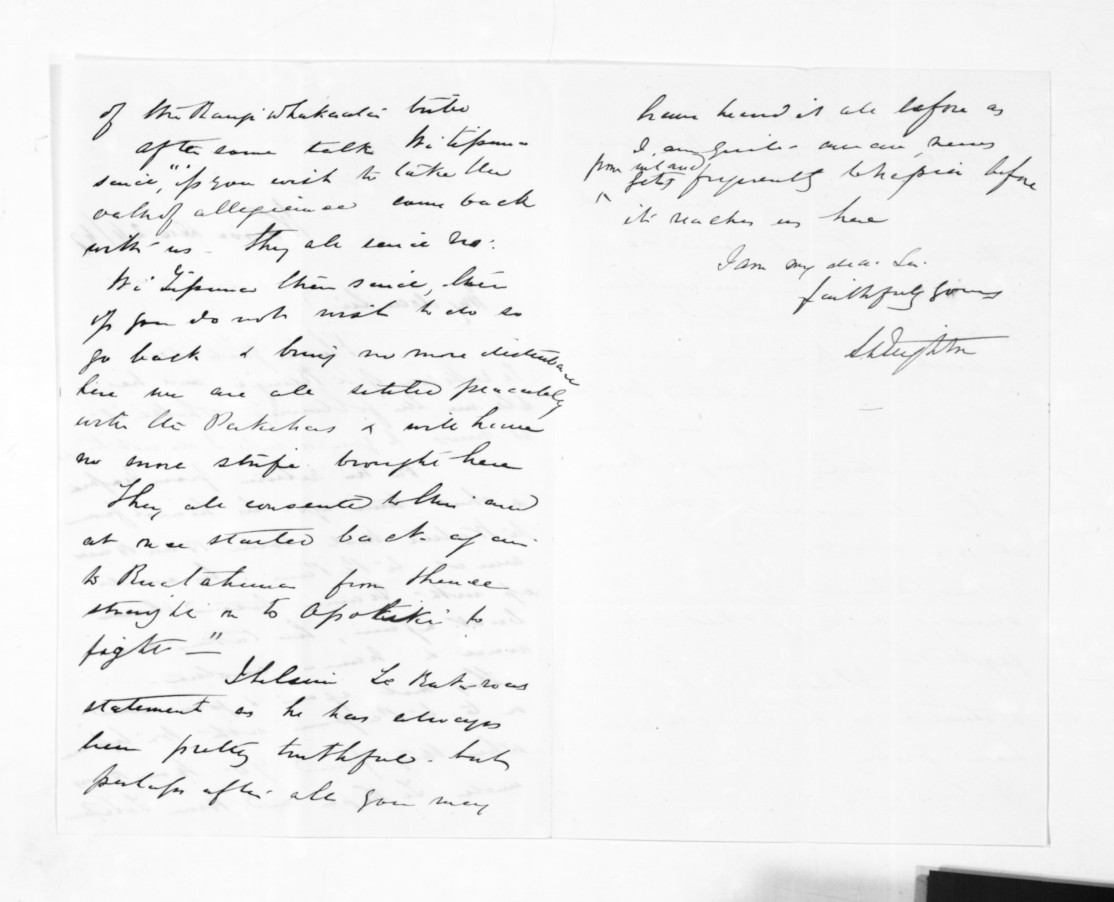 of the Rangi Whakaata tribe
after some talk Wi Tipuna
said, "if you wish to take the
oath of allegience come back
with us - They all said No.
Wi Tipuna then said, then
if you do not wish to do so
go back & bring no more disturbance
here we are all settled peaceably
with the Pakehas & will have
no more strife brought here
They all consented to this and
at once started back again
to Ruatahuna from thence
straight on to Opotiki to
fight -"
I believe Te statement as he has always
been pretty truthful - but
perhaps after all you may
have heard it all before as
I am quite aware, news
from inland
gets frequently to Napier before
it reaches us here
I am my dear Sir
faithfully yours
S Deighton